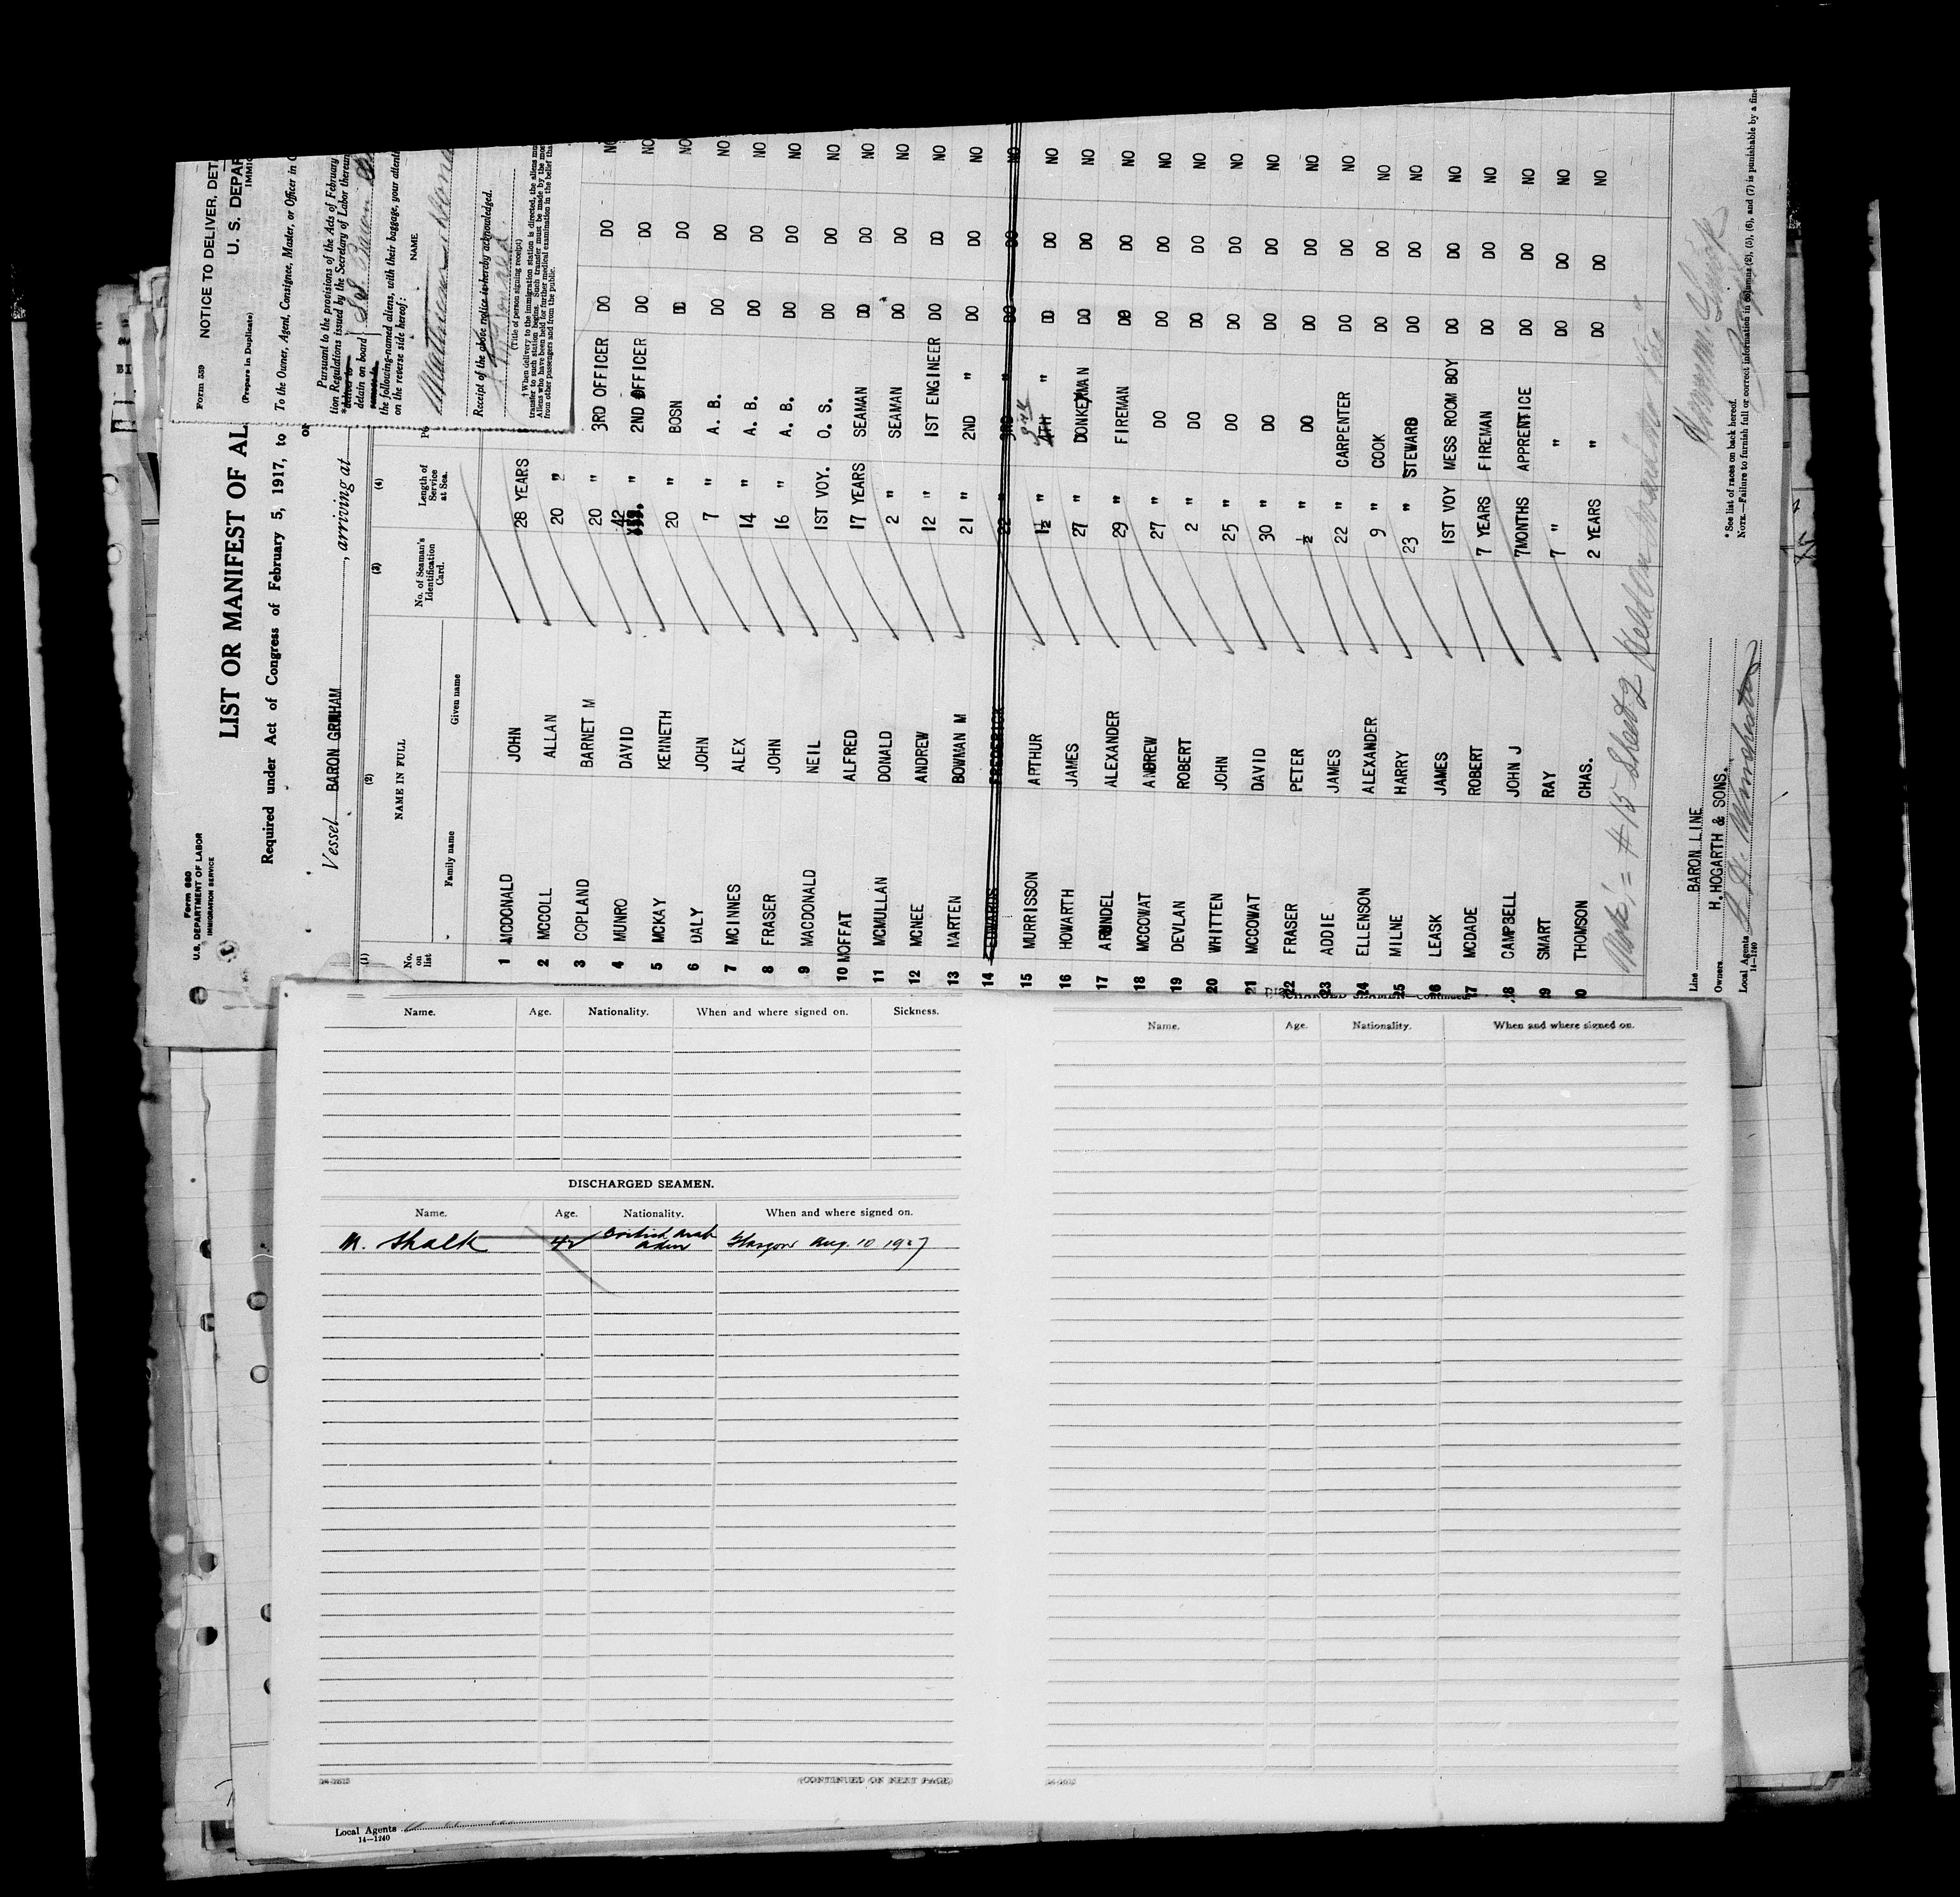 Form 680
U.S. DEPARTMENT OF LABOR
IMMIGRATION SERVICE
LIST OR MANIFEST OF AL
Required under Act of Congress of February 5, 1917, to
Vessel BARON GRAHAM, arriving at
(1) (2) (3) (4)
No. on list
NAME IN FULL
Family name Given name
No. of Seaman's Identification Card.
Length of Service at Sea.
1 MCDONALD JOHN 28 YEARS 3RD OFFICER DO DO NO
2 MCCOLL ALLAN 20 " 2ND OFFICER DO DO NO
3 COPLAND BARNET M 20 " BOSN DO DO NO
4 MUNRO DAVID 42 " A. B. DO DO NO
5 MCKAY KENNETH 20 " A. B. DO DO NO
6 DALY JOHN 7 " A. B. DO DO NO
7 MCINNES ALEX 14 " O. S. DO DO NO
8 FRASER JOHN 16 " SEAMAN DO DO NO
9 MACDONALD NEIL 1ST VOY. SEAMAN DO DO NO
10 MOFFAT ALFRED 17 YEARS 1ST ENGINEER DO DO NO
11 MCMULLAN DONALD 2 " 2ND " DO DO NO
12 MCNEE ANDREW 12 " 3RD " DO DO NO
13 MARTEN BOWMAN M 21 "
14 EDWARDS FREDERICK 22 "
15 MURRISSON ARTHUR 1½ " 3rd 4TH " DO DO NO
16 HOWARTH JAMES 27 " DONKEYMAN DO DO NO
17 ARUNDEL ALEXANDER 29 " FIREMAN DO DO NO
18 MCCOWAT ANDREW 27 " DO DO DO NO
19 DEVLAN ROBERT 2 " DO DO DO NO
20 WHITTEN JOHN 25 " DO DO DO NO
21 MCCOWAT DAVID 30 " DO DO DO NO
22 FRASER PETER ½ " DO DO DO NO
23 ADDIE JAMES 22 " CARPENTER DO DO NO
24 ELLENSON ALEXANDER 9 " COOK DO DO NO
25 MILNE HARRY 23 " STEWARD DO DO NO
26 LEASK JAMES 1ST VOY MESS ROOM BOY DO DO NO
27 MCDADE ROBERT 7 YEARS FIREMAN DO DO NO
28 CAMPBELL JOHN J 7MONTHS APPRENTICE DO DO NO
29 SMART RAY 7 " " DO DO NO
30 THOMSON CHAS. 2 YEARS " DO DO NO
Note: = #15 Sheet 2
Line BARON LINE
Owners H.HOGARTH & SONS.
Local Agents
14—1240
*See list of races on back hereof.
NOTE.—Failure to furnish full or correct information in columns (2), (5), (6), and (7) is punishable by a fine
Form 559
NOTICE TO DELIVER, DETA
U. S. DEPAR
IMMIG
(Prepare in Duplicate)
To the Owner, Agent, Consignee, Master, or Officer in C
Pursuant to the provisions of the Acts of February
tion Regulations issued by the Secretary of Labor thereun
detain on board S.S. Baron
the following-named aliens, with their baggage, your attenti
on the reverse side hereof:
NAME
Receipt of the above notice is hereby acknowledged.
(Title of person signing receipt)
††When delivery to the immigration station is directed, the aliens mus
transfer to such station begins. Such transfer must be made by the mos
Aliens who have been held for further medical examination in the belief tha
from other passengers and from the public.
Name. Age. Nationality. When and where signed on. Sickness.
DISCHARGED SEAMEN.
Name. Age. Nationality. When and where signed on.
M. Shalk 42 British Arab Aden Glasgow Aug. 10 1927
(CONTINUED ON NEXT PAGE)
DISCHARGED SEAMEN—Continued
Name. Age. Nationality. When and where signed on.
Local Agents
14—1240